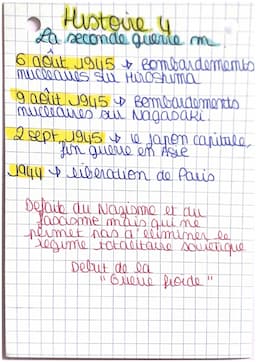 Histoire 4
La seconde guerre m
6 août 1945 → Bombardements
nucléaires sur Hiroshima
9 août 1945 → Bombardements
nucléaires sur Nagasaki.
2 sept 1945 → le Japon capitale,
fin guerre en Asie
1944 → libération de Paris
Défaite du Nazisme et du
fascisme mais qui ne
permet pas d'éliminer le
régime totalitaire soviétique
Début de la
"Guerre froide"